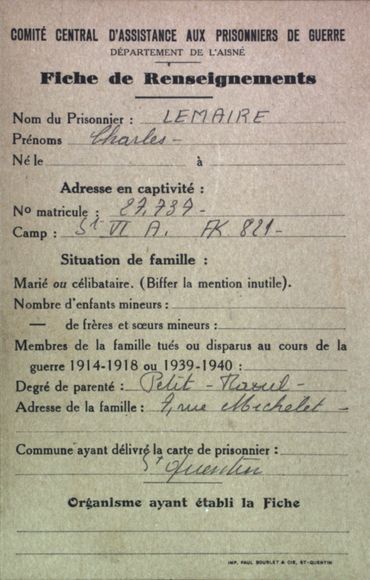 COMITÉ CENTRAL D'ASSISTANCE AUX PRISONNIERS DE GUERRE
DÉPARTEMENT DE L'AISNE
Fiche de Renseignements
Nom du Prisonnier : LEMAIRE
Prénoms Charles -
Né le à
Adresse en captivité :
No matricule : 27.737 -
Camp : St VI A. AK 821 -
Situation de famille :
Marié ou célibataire. (Biffer la mention inutile).
Nombre d'enfants mineurs :
— de frères et sœurs mineurs :
Membres de la famille tués ou disparus au cours de la
guerre 1914-1918 ou 1939-1940 :
Degré de parenté : Petit -
Adresse de la famille : 7, rue Michelet -
Commune ayant délivré la carte de prisonnier :
St Quentin
Organisme ayant établi la Fiche
IMP. PAUL BOURLET & CIE, ST-QUENTIN